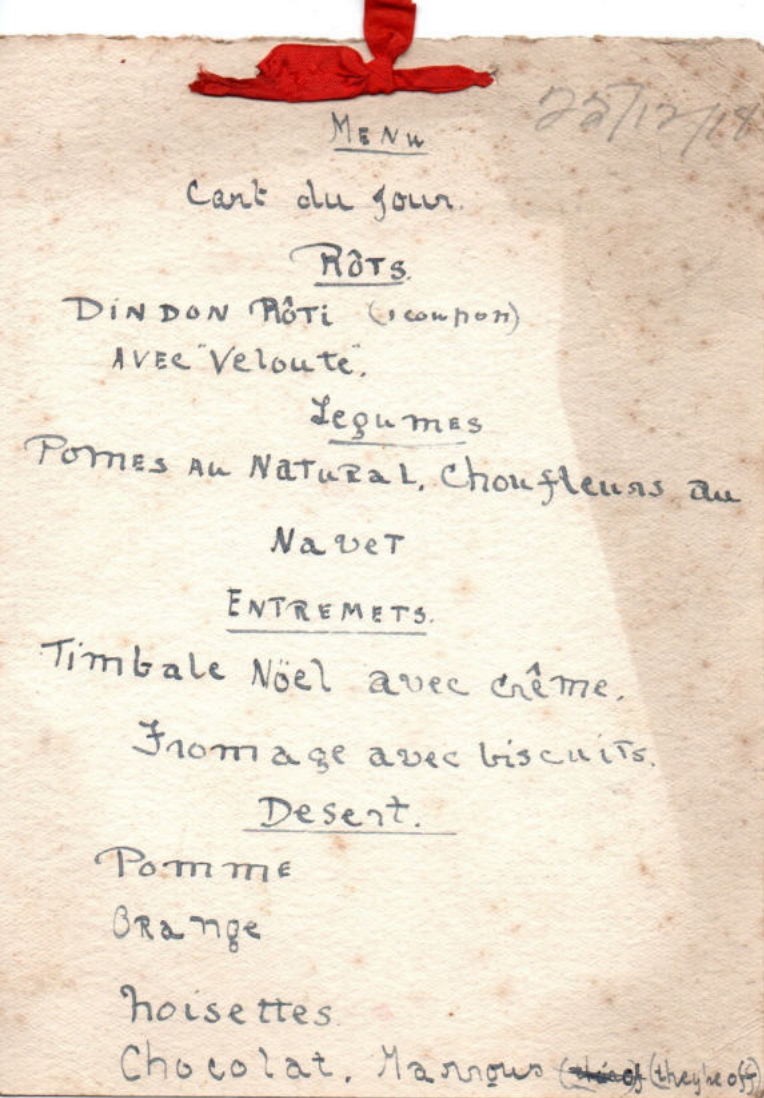 25/12/18
MENU
Cart du jour.
RÔTS.
DINDON RÔTI (1 coupon)
AVEC "Veloute".
Legumes
POMES AU NATURAL. Choufleurs au
NaveT
ENTREMETS.
Timbale Nöel avec crême.
Fromage avec biscuits.
Desert.
Pomme
Orange
Noisettes
Chocolat. Marrons (they're off)